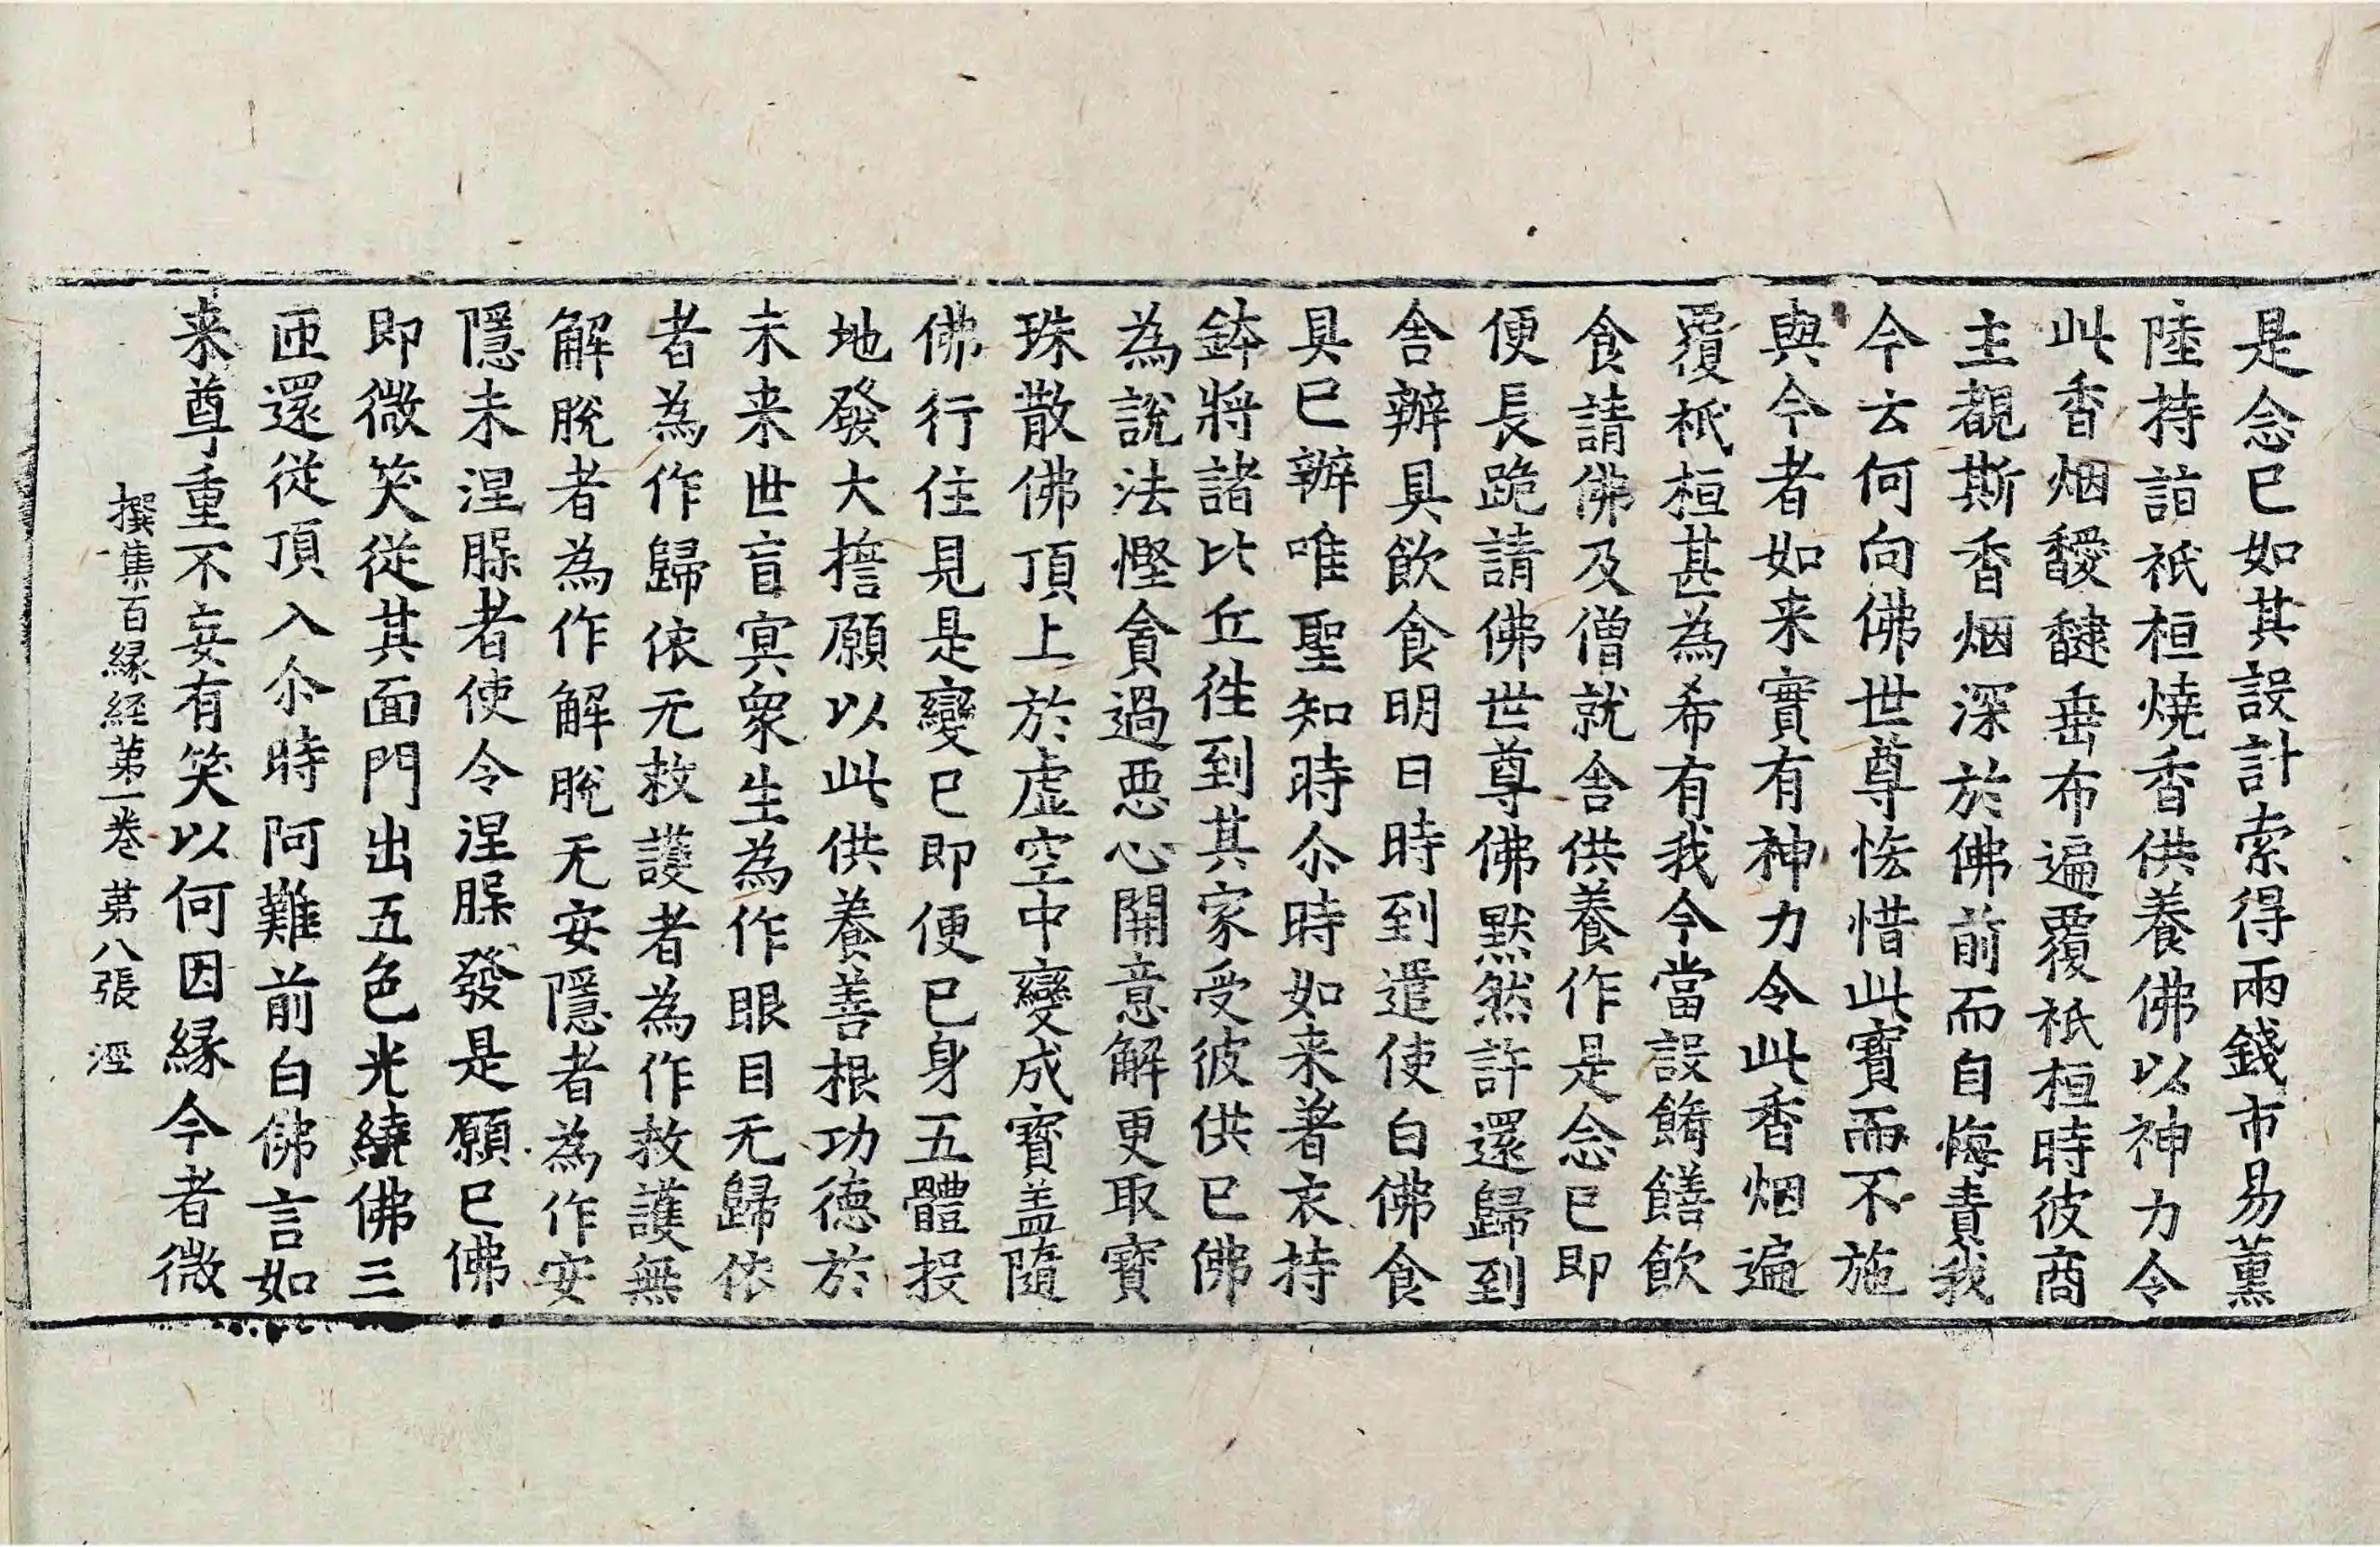 是念已如其設計索得兩錢市易薰
陸持詣祇桓燒香供養佛以神力令
此香烟靉靆垂布遍覆祇桓時彼商
主覩斯香烟深於佛前而自悔責我
今云何向佛世尊恡惜此寶而不施
與今者如来實有神力令此香烟遍
覆祇桓甚為希有我今當設餚饍飲
食請佛及僧就舍供養作是念已即
便長跪請佛世尊佛默然許還歸到
舍辦具飲食明日時到遣使白佛食
具已辦唯聖知時尒時如来著衣持
鉢將諸比丘徃到其家受彼供已佛
為說法慳貪過惡心開意解更取寶
珠散佛頂上於虛空中變成寶盖隨
佛行住見是變已即便已身五體投
地發大擔願以此供養善根功德於
未来世盲冥衆生為作眼目无歸依
者為作歸依无救護者為作救護無
解脫者為作解脫无安隱者為作安
隱未涅槃者使令涅槃發是願已佛
即微笑從其面門出五色光繞佛三
匝還從頂入尒時阿難前白佛言如
来尊重不妄有笑以何因緣今者微
撰集百緣経苐一卷 苐八張 溼